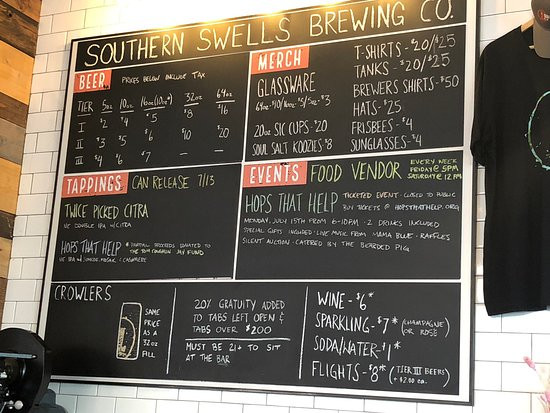 SOUTHERN SWELLS BREWING CO.
BEER PRICES BELOW INCLUDE TAX
TIER 5oz 10oz 16oz 32oz 64oz
I $2 $4 $5 $8 $16
II $3 $5 $6 $10 $20
III $4 $6 $7 — —
MERCH
T-SHIRTS-$20/$25
TANKS-$20/$25
GLASSWARE
BREWERS SHIRTS-$50
HATS-$25
20oz SIC CUPS-$20
FRISBEES-$4
SOUL SALT KOOZIES-$8
SUNGLASSES-$4
TAPPINGS CAN RELEASE 7/13
TWICE PICKED CITRA
DOUBLE IPA w/CITRA
HOPS THAT HELP * PARTIAL PROCEEDS DONATED TO
THE TOM COUGHLIN JAY FUND
EVENTS FOOD VENDOR
EVERY WEEK
FRIDAY @ 5PM
SATURDAY @ 12 PM
HOPS THAT HELP TICKETED EVENT - CLOSED TO PUBLIC
BUY TICKETS @ HOPSTHATHELP.ORG
MONDAY, JULY 15TH FROM 6-10PM - 2 DRINKS INCLUDED
SPECIAL GIFTS INCLUDED - LIVE MUSIC FROM MAMA BLUE - RAFFLES
SILENT AUCTION - CATERED BY THE BEARDED PIG
CROWLERS
SAME
PRICE
AS A
32oz
FILL
20% GRATUITY ADDED
TO TABS LEFT OPEN &
TABS OVER $200
MUST BE 21+ TO SIT
AT THE BAR
WINE-$6*
SPARKLING-$7* (CHAMPAGNE)
OR ROSÉ
SODA/WATER-$1*
FLIGHTS-$8* (TIER III BEERS)
+$2.00 ea.